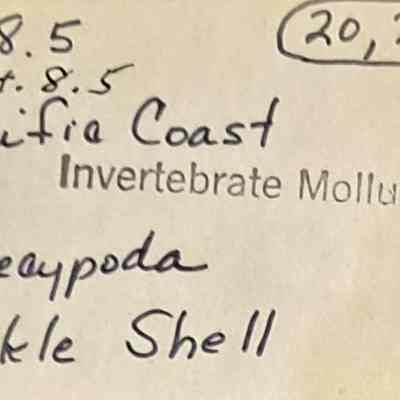 8.5 20,
t. 8.5
ific Coast
Invertebrate Mollu
ecypoda
kle Shell